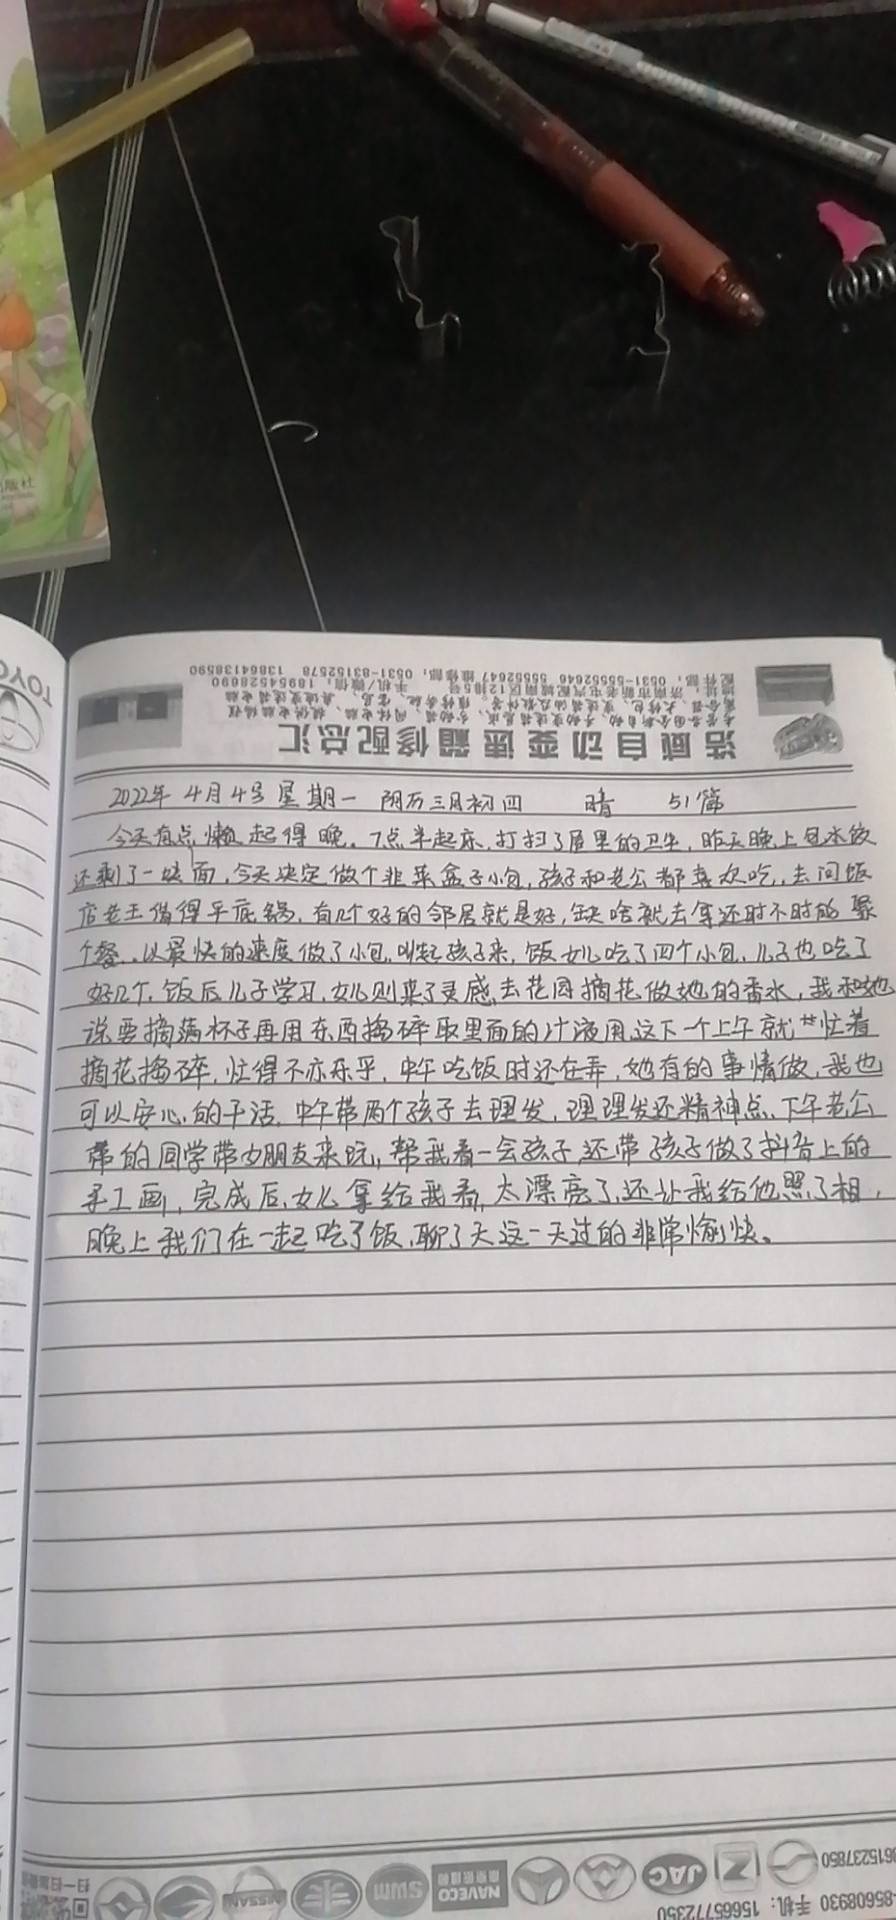 浩威自动变速箱修配总汇
地址：济南市新老屯配汽城南区12排5号 手机/微信：18954528690
配件部：0531-55552646 55552647 维修部：0531-83152578 13864138590
2022年 4月4号 星期一 阴历三月初四 晴 51篇
今天有点懒起得晚。7点半起床,打扫了屋里的卫生,昨天晚上包水饺
还剩了一块面,今天决定做个韭菜盒子小包,孩子和老公都喜欢吃,去问饭
店老王借得平底锅,有几个好的邻居就是好,缺啥就去拿还时不时的聚
个餐..以最快的速度做了小包,叫起孩子来,饭女儿吃了四个小包,儿子也吃了
好几个,饭后儿子学习,女儿则来了灵感,去花园摘花做她的香水,我和她
说要摘满杯子再用东西捣碎取里面的汁液用,这下一个上午就忙着
摘花捣碎,忙得不亦乐乎,中午吃饭时还在弄,她有的事情做,我也
可以安心的干活,中午带两个孩子去理发,理理发还精神点,下午老公
的同学带女朋友来玩,帮我看一会孩子,还带孩子做了抖音上的
手工画,完成后,女儿拿给我看,太漂亮了,还让我给他照了相,
晚上我们在一起吃了饭,聊了天这一天过的非常愉快。
TOYO
出版社
扫一扫
NISSAN
SWM
NAVECO
JAC
0615237850
85608930 手机：15665772350